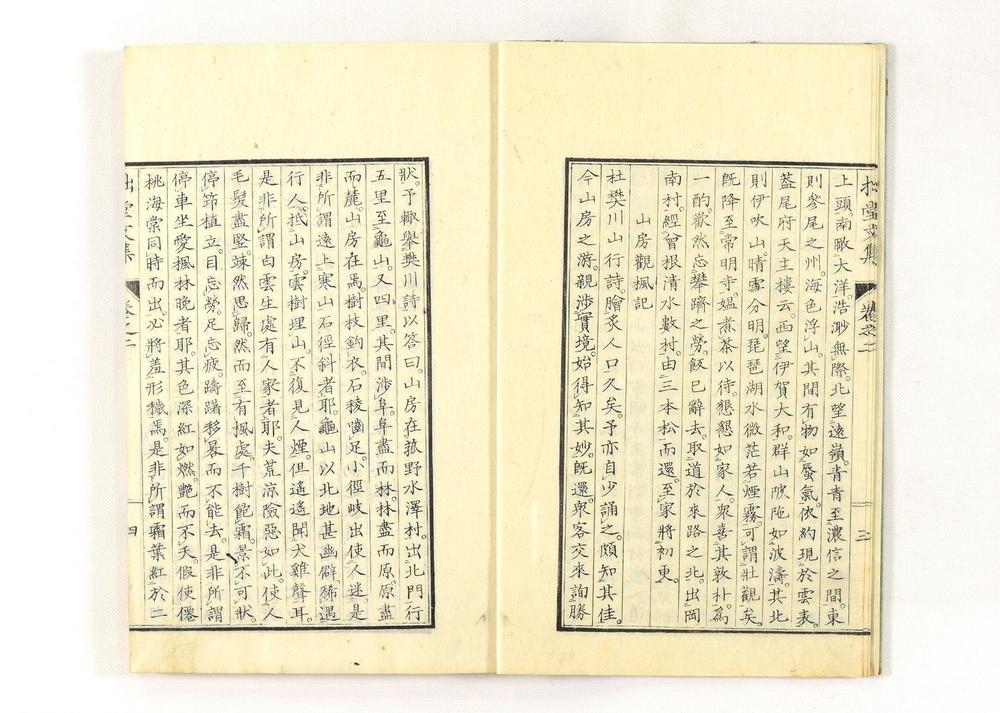 拙堂文集
卷之二
三
上頭。南瞰大洋。浩渺無際。北望遠嶺。青青至濃信之間。東
則參尾之州。海色浮山。其間有物如蜃氣。依約現於雲表。
蓋尾府天主樓云。西望伊賀大和。群山陂陁如波濤。其北
則伊吹山。晴雪分明。琵琶湖水微茫若煙霧。可謂壯觀矣。
既降至常明寺。媼煮茶以待。懇懇如家人。衆喜其敦朴。爲
一酌。歡然忘攀躋之勞。飯已辭去。取道於來路之北。出岡
南村。經曾根清水數村。由三本松而還。至家將初更。
山房觀楓記
杜樊川山行詩。膾炙人口久矣。予亦自少誦之。頗知其佳。
今山房之游。親涉實境。始得知其妙。既還。衆客交來詢勝
狀。予輙舉樊川詩以答曰。山房在菰野水澤村。出北門行
五里至龜山。又四里。其間涉阜。阜盡而林。林盡而原。原盡
而麓。山房在焉。樹枝鈎衣。石稜嚙足。小徑岐出使人迷。是
非所謂遠上寒山石徑斜者耶。龜山以北地甚幽僻。稀遇
行人。抵山房。雲樹埋山。不復見人煙。但遙遙聞犬雞聲耳。
是非所謂白雲生處有人家者耶。夫荒涼險惡如此。使人
毛髮盡竪。竦然思歸。然而至有楓處。千樹飽霜。景不可狀。
停筇植立。目忘勞。足忘疲。躊躇移晷而不能去。是非所謂
停車坐愛楓林晚者耶。其色深紅如燃。艷而不夭。假使僊
桃海棠同時而出。必將羞形穢焉。是非所謂霜葉紅於二
拙堂文集
卷之二
四